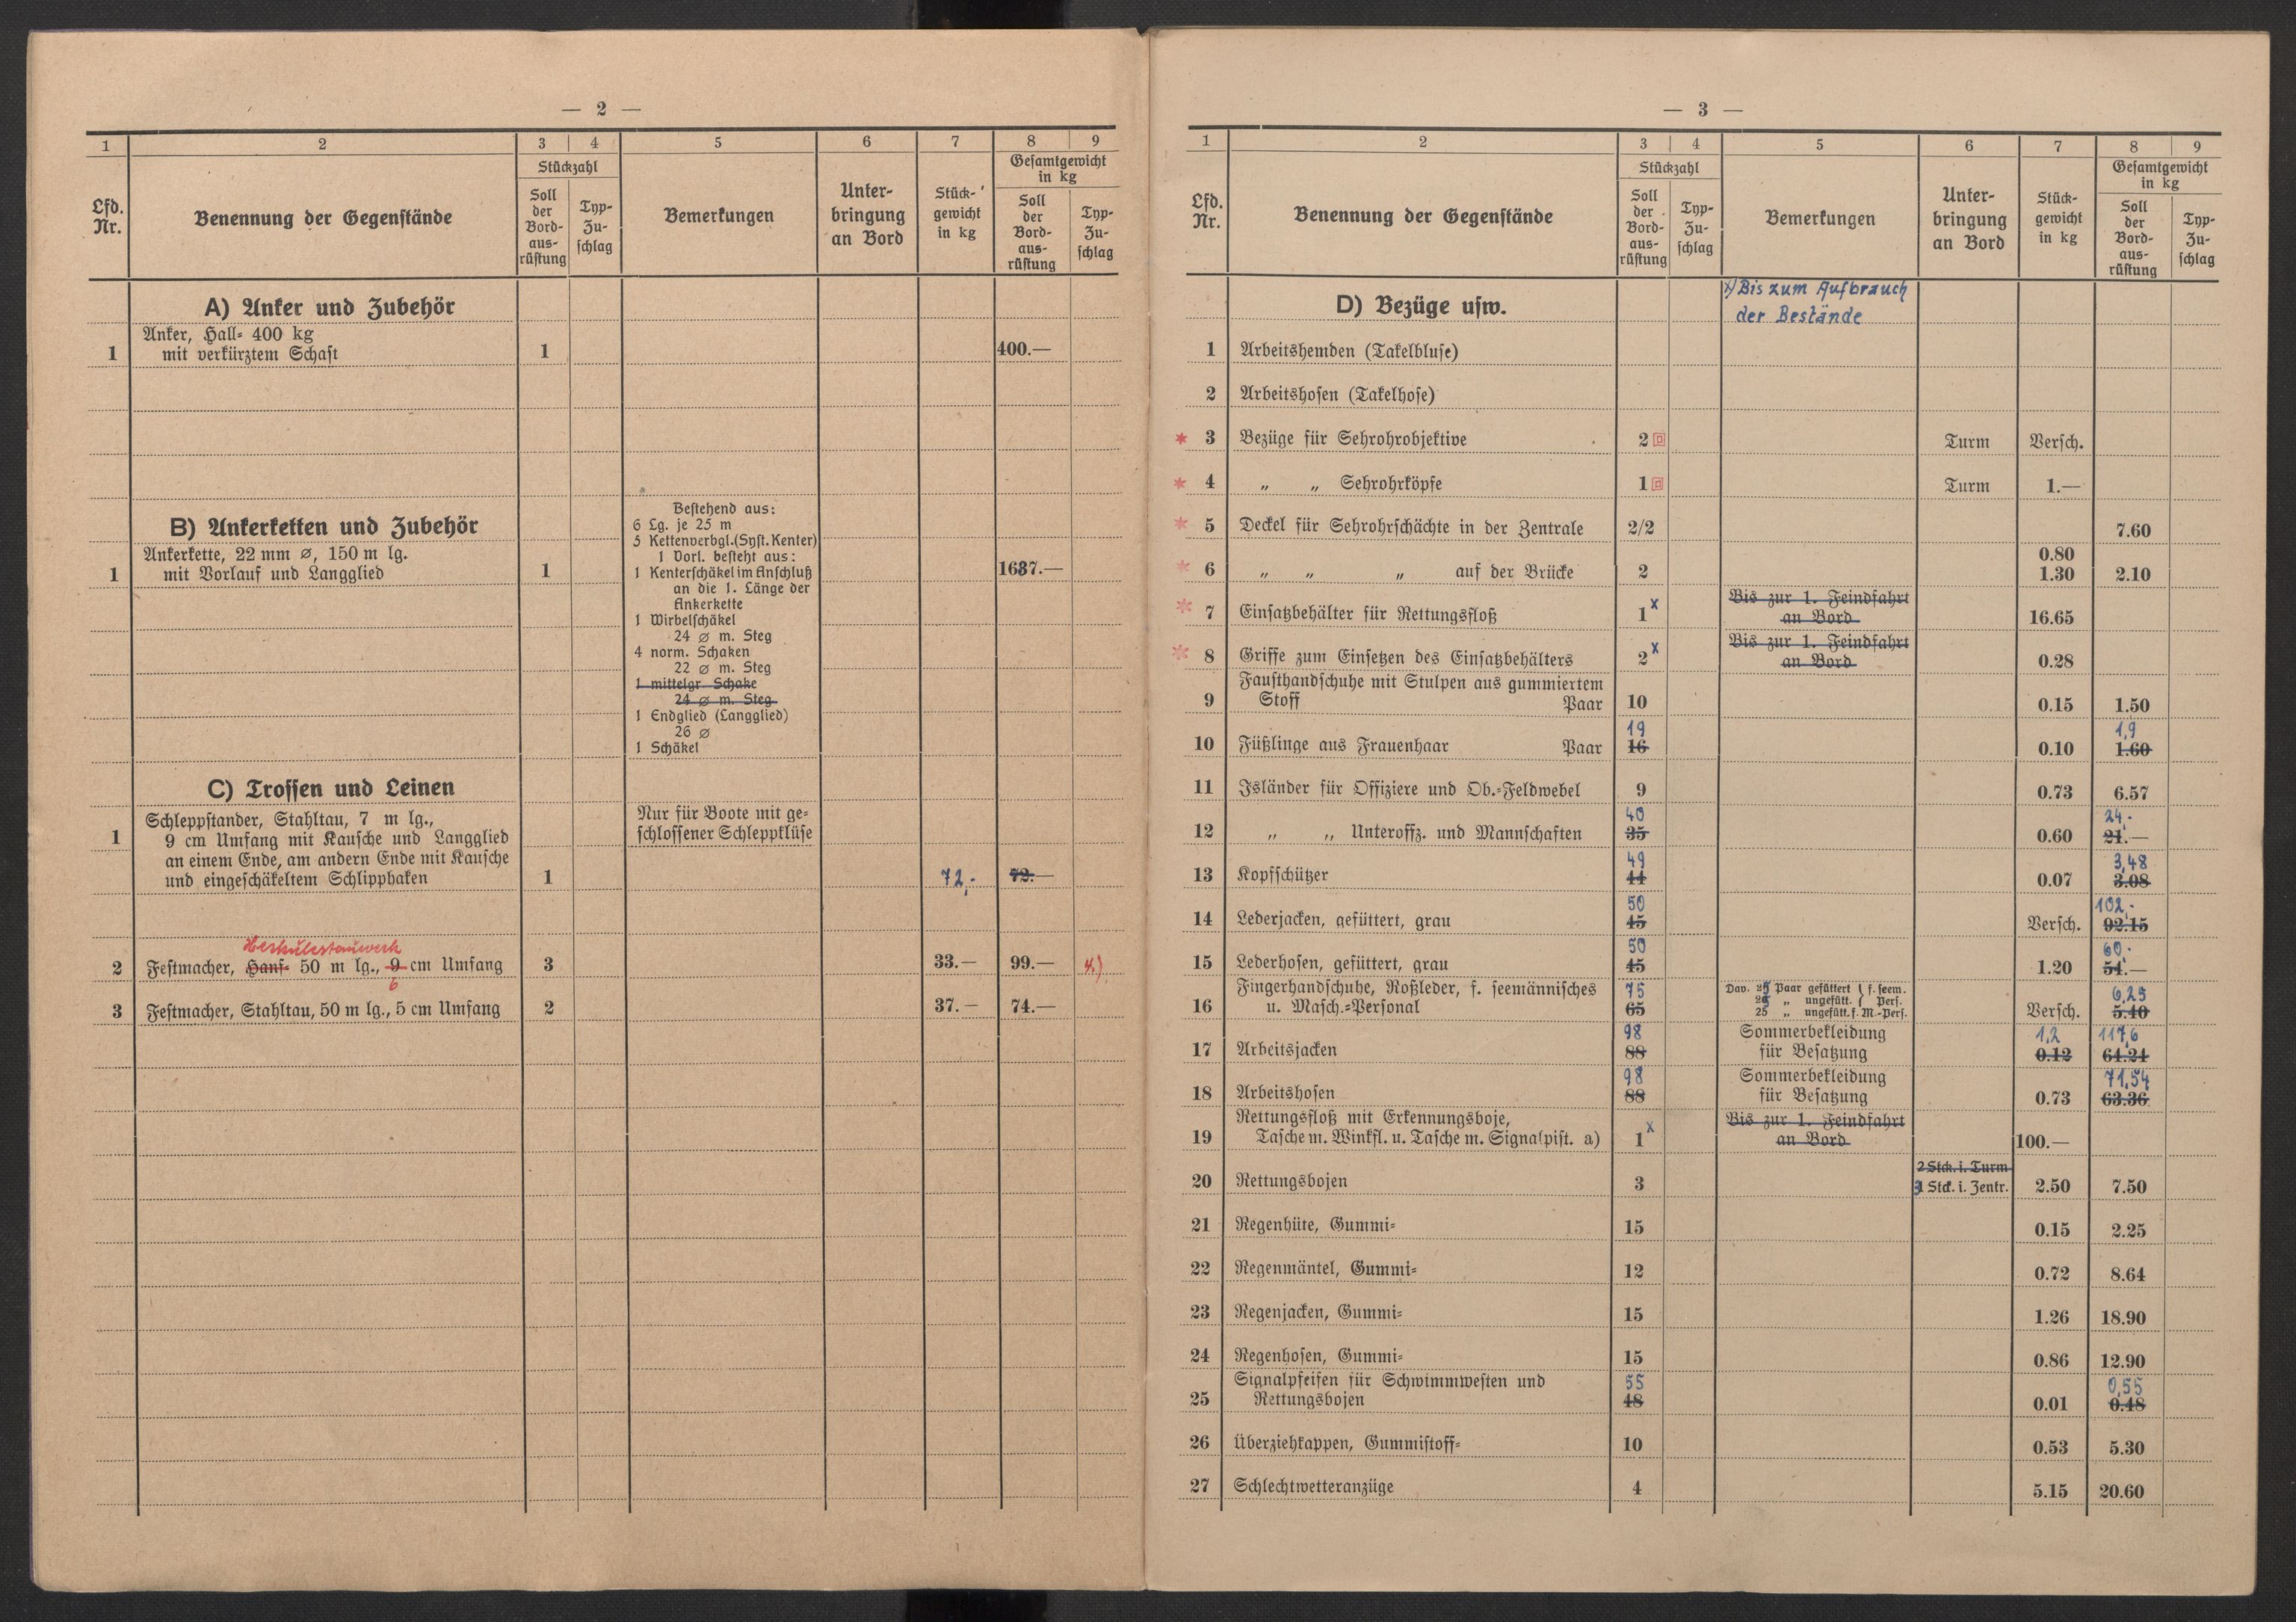 — 2 —
1 2 3 4 5 6 7 8 9
Lfd. Nr.
Benennung der Gegenstände
Stückzahl
Soll der Bord-aus-rüstung
Typ-Zu-schlag
Bemerkungen
Unter-bringung an Bord
Stück-gewicht in kg
Gesamtgewicht in kg
Soll der Bord-aus-rüstung
Typ-Zu-schlag
A) Anker und Zubehör
Anker, Hall- 400 kg
1 mit verkürztem Schaft 1 400.—
B) Ankerketten und Zubehör
Ankerkette, 22 mm ⌀, 150 m lg.
1 mit Vorlauf und Langglied 1 1637.—
Bestehend aus:
6 Lg. je 25 m
5 Kettenverbgl. (Syst. Kenter)
1 Vorl. besteht aus:
1 Kenterschäkel im Anschluß
an die 1. Länge der
Ankerkette
1 Wirbelschäkel
24 ⌀ m. Steg
4 norm. Schaken
22 ⌀ m. Steg
1 mittelgr. Schake
24 ⌀ m. Steg
1 Endglied (Langglied)
26 ⌀
1 Schäkel
C) Trossen und Leinen
1 Schleppstander, Stahltau, 7 m lg.,
9 cm Umfang mit Kausche und Langglied
an einem Ende, am andern Ende mit Kausche
und eingeschäkeltem Schlipphaken 1 72,- 72.—
Nur für Boote mit ge-
schlossener Schleppklüse
Herkulestauwerk
2 Festmacher, Hanf- 50 m lg., 9 cm Umfang 3 33.— 99.— 4.)
6
3 Festmacher, Stahltau, 50 m lg., 5 cm Umfang 2 37.— 74.—
— 3 —
1 2 3 4 5 6 7 8 9
Lfd. Nr.
Benennung der Gegenstände
Stückzahl
Soll der Bord-aus-rüstung
Typ-Zu-schlag
Bemerkungen
Unter-bringung an Bord
Stück-gewicht in kg
Gesamtgewicht in kg
Soll der Bord-aus-rüstung
Typ-Zu-schlag
D) Bezüge usw.
x) Bis zum Aufbrauch
der Bestände
1 Arbeitshemden (Takelbluse)
2 Arbeitshosen (Takelhose)
* 3 Bezüge für Sehrohrobjektive 2 Turm Versch.
* 4 „ „ Sehrohrköpfe 1 Turm 1.—
* 5 Deckel für Sehrohrschächte in der Zentrale 2/2 7.60
0.80
* 6 „ „ „ auf der Brücke 2 1.30 2.10
* 7 Einsatzbehälter für Rettungsfloß 1 x Bis zur 1. Feindfahrt an Bord 16.65
* 8 Griffe zum Einsetzen des Einsatzbehälters 2 x Bis zur 1. Feindfahrt an Bord 0.28
Fausthandschuhe mit Stulpen aus gummiertem
9 Stoff Paar 10 0.15 1.50
19 1,9
10 Füßlinge aus Frauenhaar Paar 16 0.10 1.60
11 Isländer für Offiziere und Ob.-Feldwebel 9 0.73 6.57
40 24,-
12 „ „ Unteroffz. und Mannschaften 35 0.60 21.—
49 3,48
13 Kopfschützer 44 0.07 3.08
50 102,-
14 Lederjacken, gefüttert, grau 45 Versch. 92.15
50 60.-
15 Lederhosen, gefüttert, grau 45 1.20 54.—
Fingerhandschuhe, Roßleder, f. seemännisches 75 6,25
16 u. Masch.-Personal 65 Versch. 5.40
Dav. 25 Paar gefüttert } f. seem.
25 „ ungefütt. } Pers.
25 „ ungefütt. f. M.-Pers.
98 1,2 117,6
17 Arbeitsjacken 88 Sommerbekleidung für Besatzung 0.12 64.24
98 71,54
18 Arbeitshosen 88 Sommerbekleidung für Besatzung 0.73 63.36
Rettungsfloß mit Erkennungsboje,
19 Tasche m. Winkfl. u. Tasche m. Signalpist. a) 1 x Bis zur 1. Feindfahrt an Bord 100.—
2 Stck. i. Turm
20 Rettungsbojen 3 3 Stck. i. Zentr. 2.50 7.50
21 Regenhüte, Gummi- 15 0.15 2.25
22 Regenmäntel, Gummi- 12 0.72 8.64
23 Regenjacken, Gummi- 15 1.26 18.90
24 Regenhosen, Gummi- 15 0.86 12.90
Signalpfeifen für Schwimmwesten und 55 0,55
25 Rettungsbojen 48 0.01 0.48
26 Überziehkappen, Gummistoff- 10 0.53 5.30
27 Schlechtwetteranzüge 4 5.15 20.60